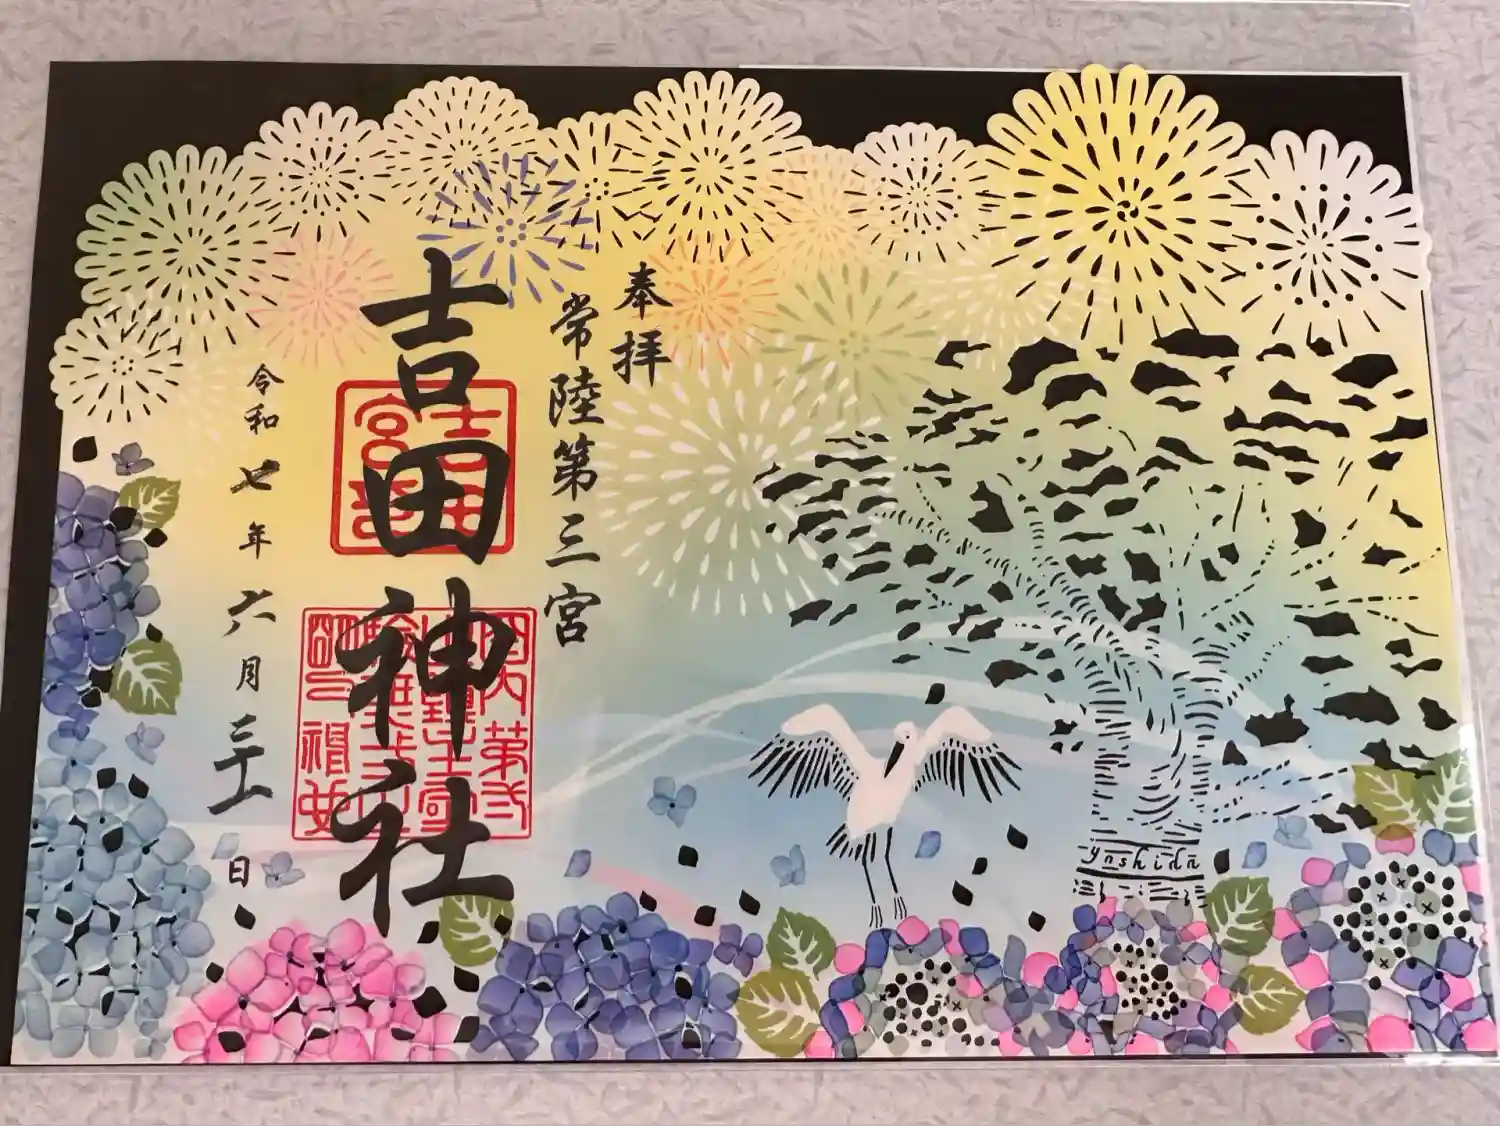 奉拝
常陸第三宮
吉田神社
令和七年六月 日
yoshida